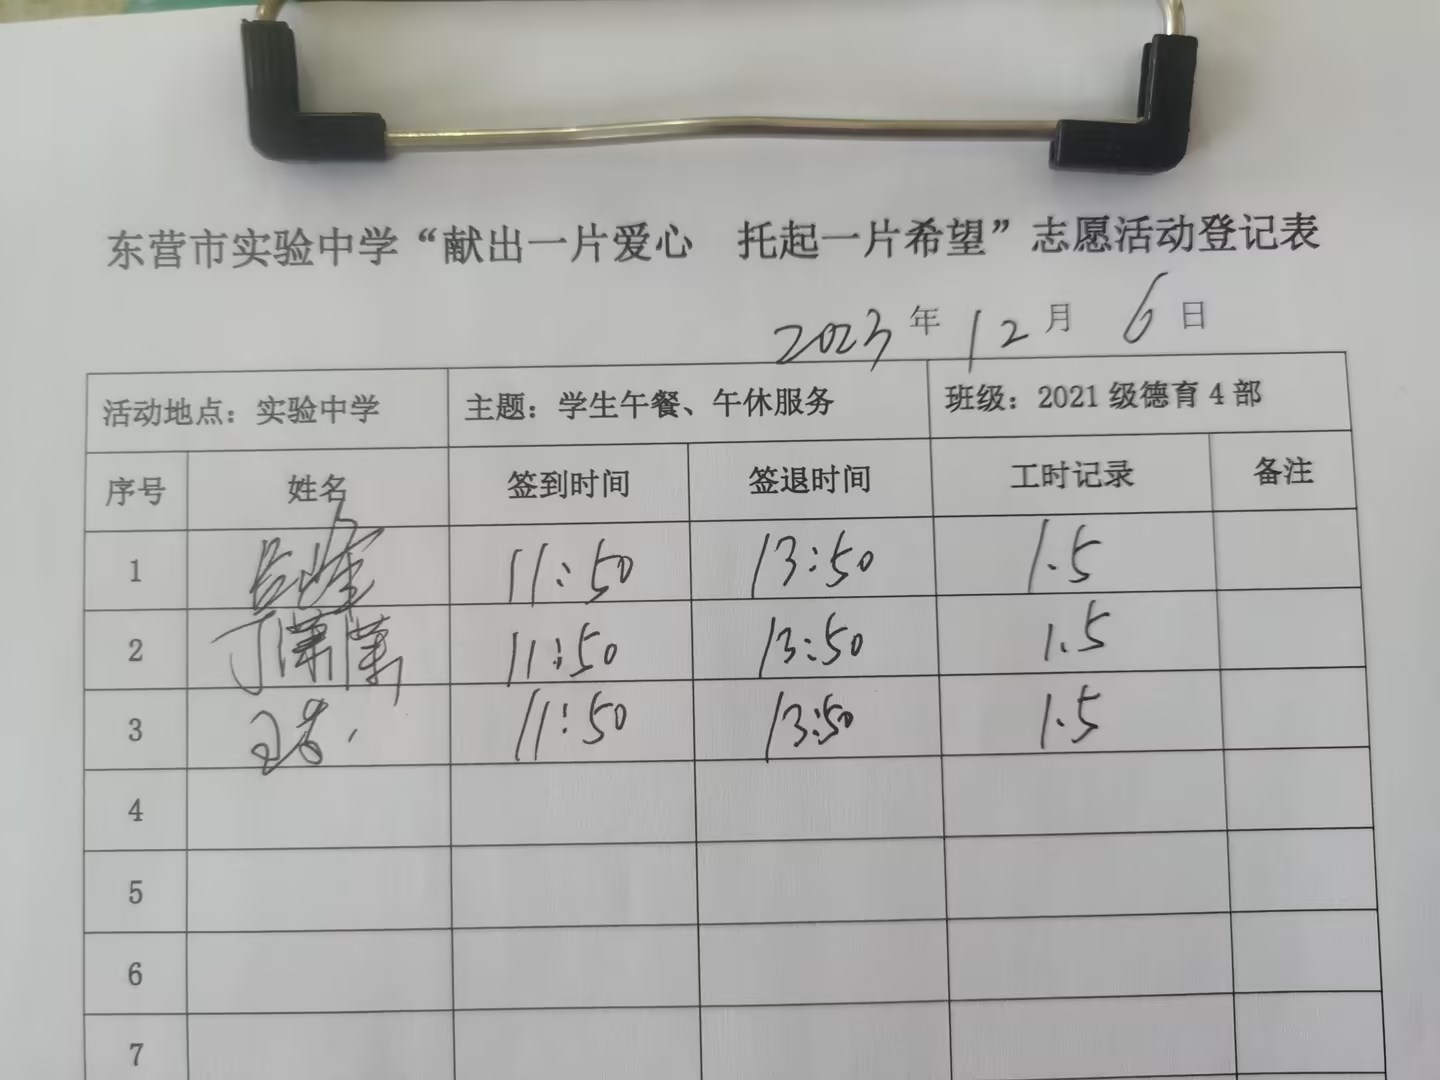 东营市实验中学“献出一片爱心 托起一片希望”志愿活动登记表
2023年12月6日
活动地点：实验中学 主题：学生午餐、午休服务 班级：2021级德育4部
序号 姓名 签到时间 签退时间 工时记录 备注
1 11:50 13:50 1.5
2 丁 11:50 13:50 1.5
3 11:50 13:50 1.5
4
5
6
7